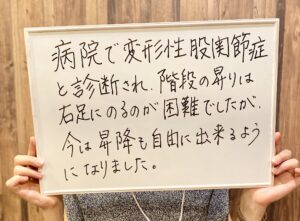 病院で変形性股関節症
と診断され、階段の昇りは
右足にのるのが困難でしたが、
今は昇降も自由に出来るよう
になりました。